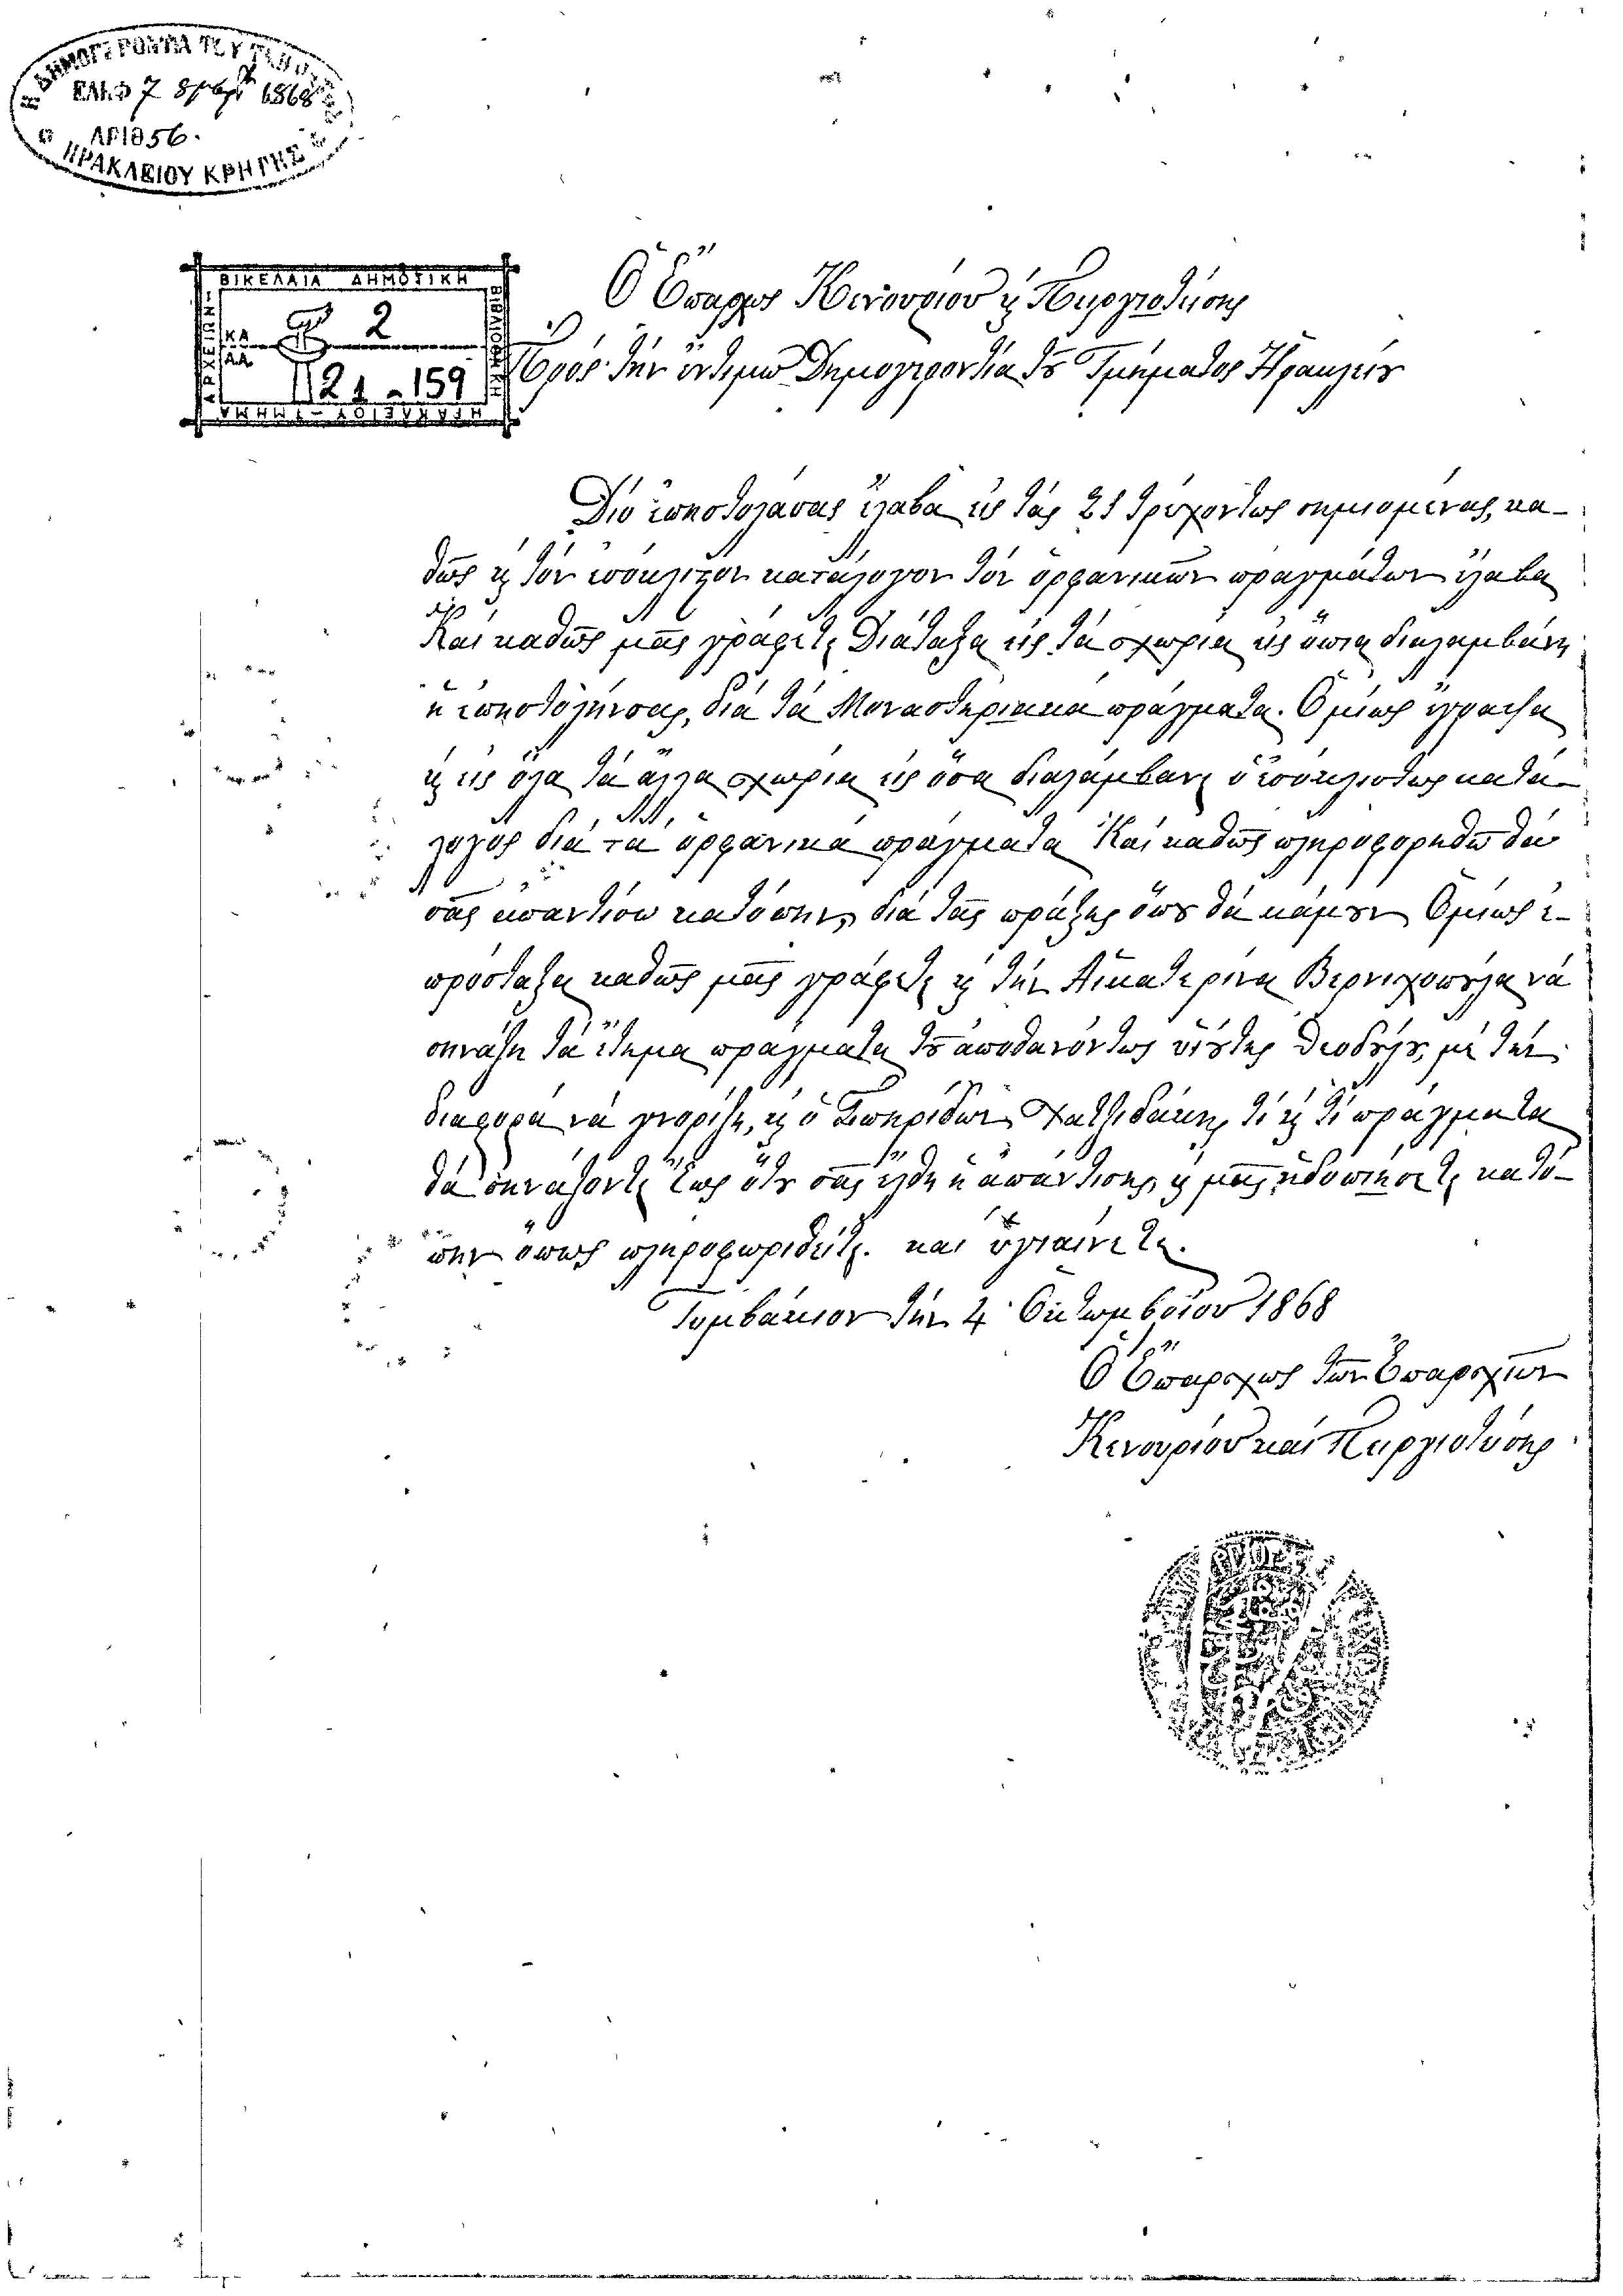 Η ΔΗΜΟΓΕΡΟΝΤΙΑ ΤΟΥ ΤΜΗΜΑΤΟΣ
ΕΛΗΦ 7 8μβρ 1868
ΑΡΙΘ 56.
ΗΡΑΚΛΕΙΟΥ ΚΡΗΤΗΣ
ΒΙΚΕΛΑΙΑ ΔΗΜΟΤΙΚΗ
ΒΙΒΛΙΟΘΗΚΗ
ΗΡΑΚΛΕΙΟΥ - ΤΜΗΜΑ
ΑΡΧΕΙΩΝ
ΚΑ 2
ΑΑ 121 - 159
Ὁ Ἔπαρχος Κενουρίου κ Πυργιοτύσης
Πρός τήν ἔντιμω Δημογεροντία τοῦ Τμήματος Ηρακλείου
Διό ἐπηστολάσας ἔλαβα εἰς τάς 21 τρέχοντως σημιομένας, κα-
θῶς κ τόν ἐσόκλιτον κατάλογον τόν ὀρφανικῶν πραγμάτων ἔλαβα
Καί καθῶς μᾶς γράφετε Διάταξα εἰς τά σχωρία εἰς ὅπια διαλαμβάνη
ἡ ἐπηστολήνσας, διά τά Μοναστηριακά πράγματα. Ὁμίως ἔγραψα
κ εἰς ὅλα τά ἄλλα σχωρία εἰς ὅσα διαλάμβανε ὁ ἐσόκλιστως κατά-
λογος διά τά ὀρφανικά πράγματα Καί καθῶς πληροφορηθῶ θά
σᾶς ἀπαντίσω κατόπην, διά τάς πράξης ὅπου θά κάμουν Ὁμίως ἐ-
πρόσταξα καθῶς μᾶς γράφετε κ τήν Αἰκατερίνα Βερνιχοπούλα νά
σηνάξη τά ἔτημα πράγματα τοῦ ἀποθανόντως υἱούτης Θεοδούλου, μέ τήν
διαφορά νά γνορίζη, κ ὁ Σπηρίδων Χατζιδάκης τί κ τί πράγματα
θά σηνάξοντε ἕως ὅτου σᾶς ἔλθη ἡ ἀπάντισης, κ μᾶς ηδοπιήσετε κατό-
πην ὅπως πληροφωριθεῖτε. καί ὑγιαίνετε.
Τυμβάκιον τήν 4 Οκτωμβρίου 1868
Ὁ Ἔπαρχως τῶν Ἐπαρχιῶν
Κενουρίου καί Πυργιοτύσης